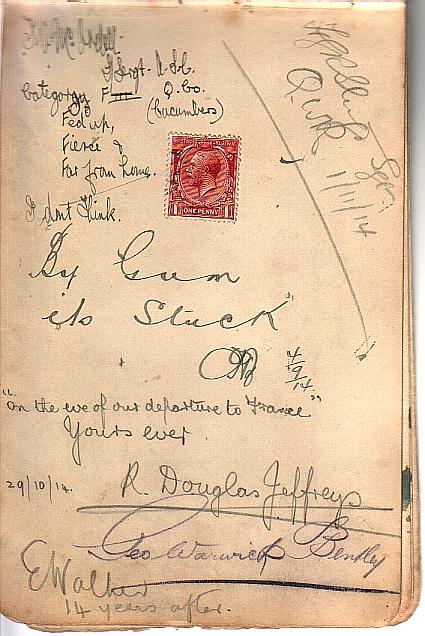 Category F III
Q. Co.
(Cucumbers)
Fed up,
Fierce &
Far from home.
I don't think.
1/11/14
ONE PENNY
By Gum
its Stuck
4/9/14
"on the eve of our departure to France"
Yours ever
29/10/14.
R. Douglas Jeffreys
Geo Warwick Bentley
E Walker
14 years after.